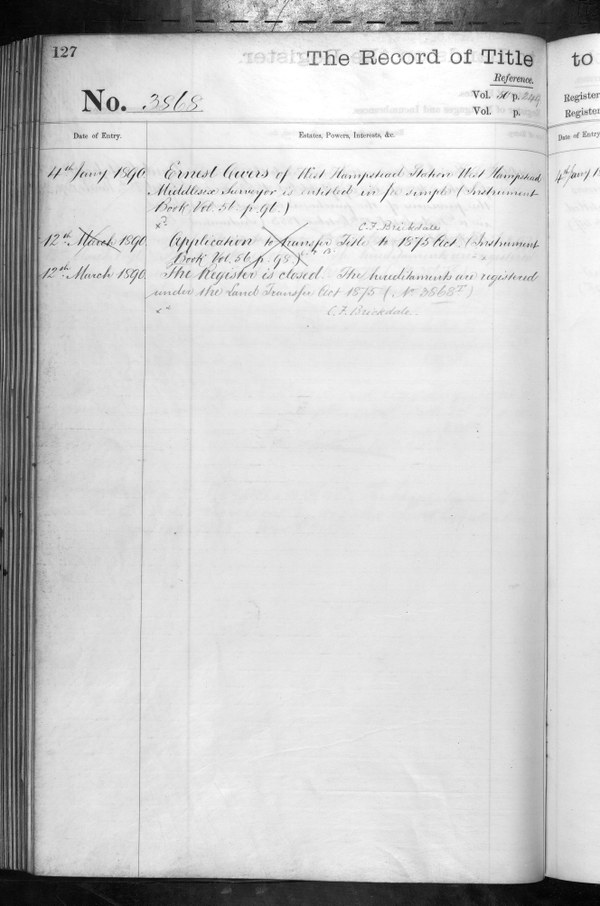 127
The Record of Title
to
Reference.
No. 3868
Vol. p.
Vol. p.
Register
Register
Date of Entry.
Estates, Powers, Interests, &c.
Date of Entry
4th Jany 1890
Ernest Owers of West Hampstead Station West Hampstead
4th Jany
Middlesex Surveyor is entitled in fee simple (Instrument
Book Vol. 56 p. 96.)
C.F. Brickdale
12th March 1890
Application to transfer Title to 1875 Act (Instrument
Book Vol. 56 p. 98)
12th March 1890
The Register is closed. The hereditaments are registered
under the Land Transfer Act 1875 (No. 3868 )
C.F. Brickdale.